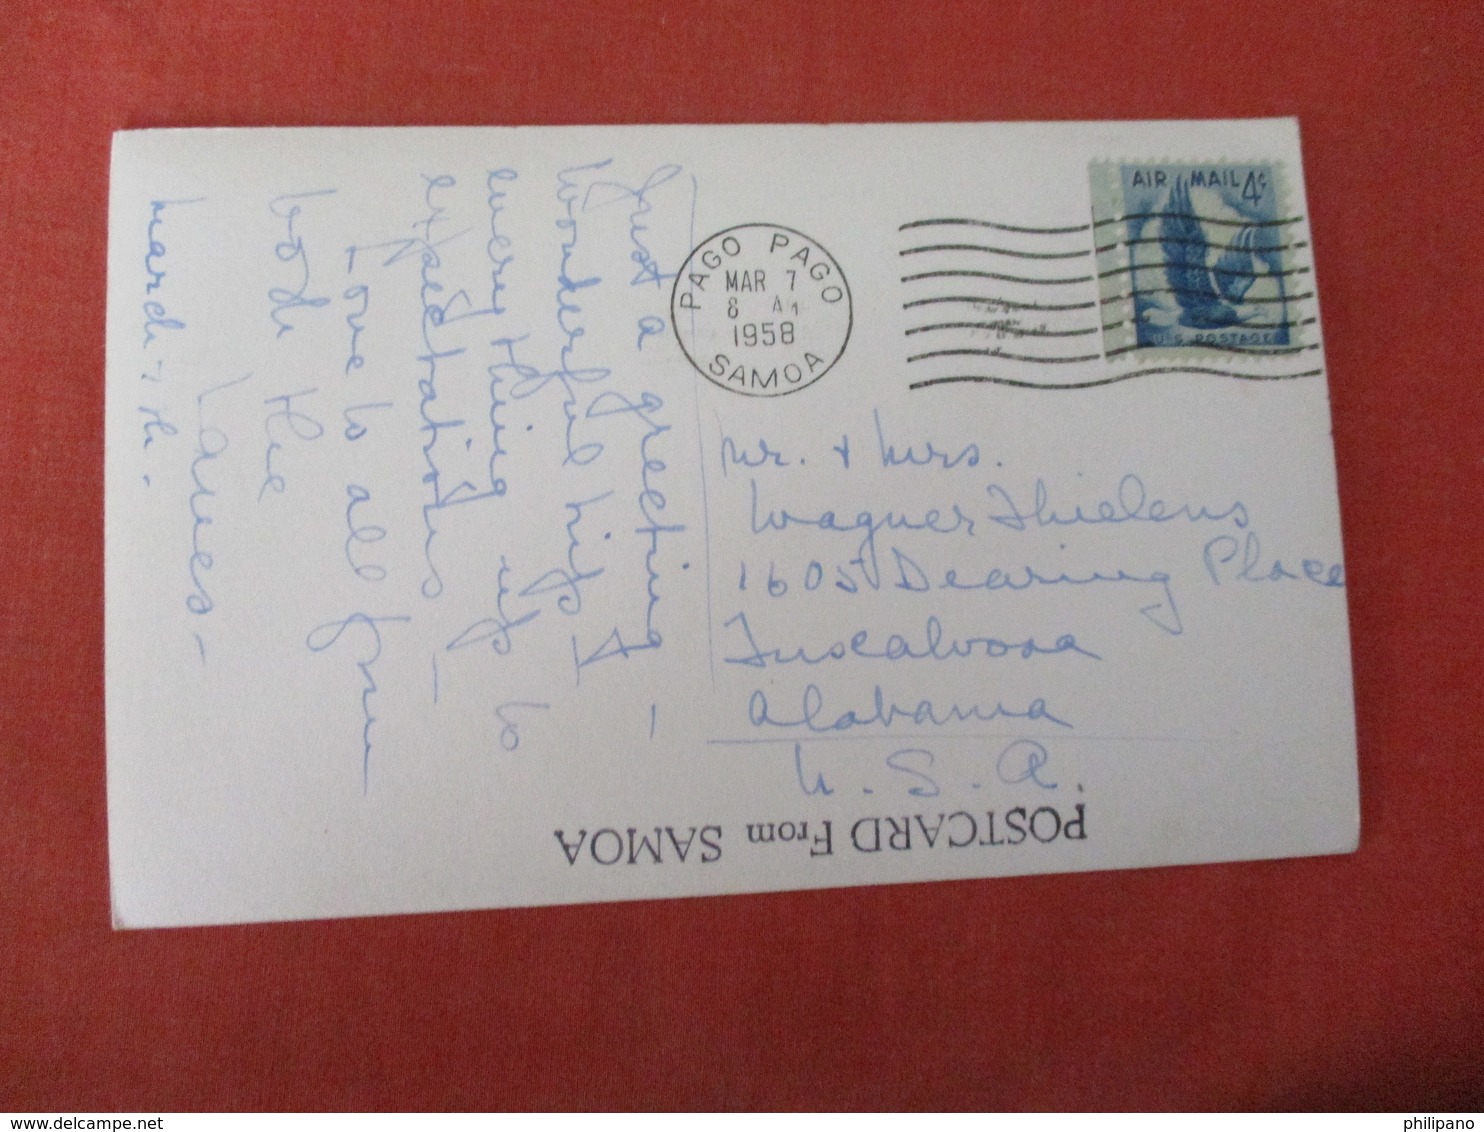 Just a greeting –
Wonderful trip &
everything up to
expectations –
Love to all from
both the
Lanes –
March - 7th.
PAGO PAGO
MAR 7
8 AM
1958
SAMOA
AIR MAIL 4¢
U.S. POSTAGE
Mr. & Mrs.
Wagner Thielens
1605 Dearing Place
Tuscaloosa
Alabama
U. S. A.
POSTCARD From SAMOA
delcampe.net
philipano